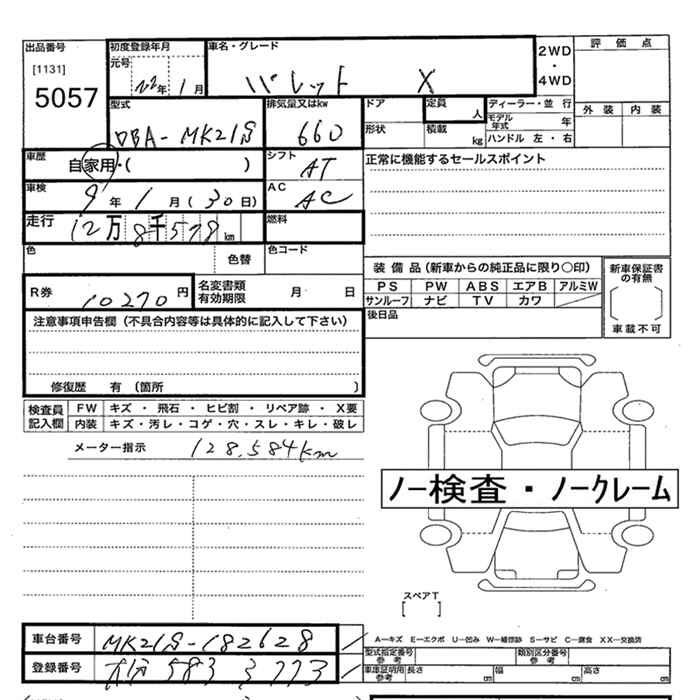 出品番号
[1131]
5057
初度登録年月
元号
22年 1月
車名・グレード
パレット X
2WD
・
4WD
評価点
外装 内装
型式
DBA-MK21S
排気量又はkw
660
ドア
定員
人
形状
積載
kg
ディーラー・並行
モデル年式 年
ハンドル 左・右
車歴
自家用・( )
シフト
AT
正常に機能するセールスポイント
車検
9年 1月 (30日)
AC
AC
走行
12万8千578km
燃料
色
色替
色コード
R券
10270円
名変書類有効期限 月 日
装備品(新車からの純正品に限り○印)
PS PW ABS エアB アルミW
サンルーフ ナビ TV カワ
後日品
新車保証書の有無
車載不可
注意事項申告欄(不具合内容等は具体的に記入して下さい)
修復歴 有 (箇所 )
検査員記入欄
FW キズ・飛石・ヒビ割・リペア跡・X要
内装 キズ・汚レ・コゲ・穴・スレ・キレ・破レ
メーター指示 128,584km
ノー検査・ノークレーム
スペアT
[ ]
車台番号
MK21S-182628
登録番号
583
3773
A-キズ E-エクボ U-凹み W-補修跡 S-サビ C-腐食 XX-交換済
型式指定番号
参考
類別区分番号
参考
車庫証明用
参考
長さ cm 幅 cm 高さ cm